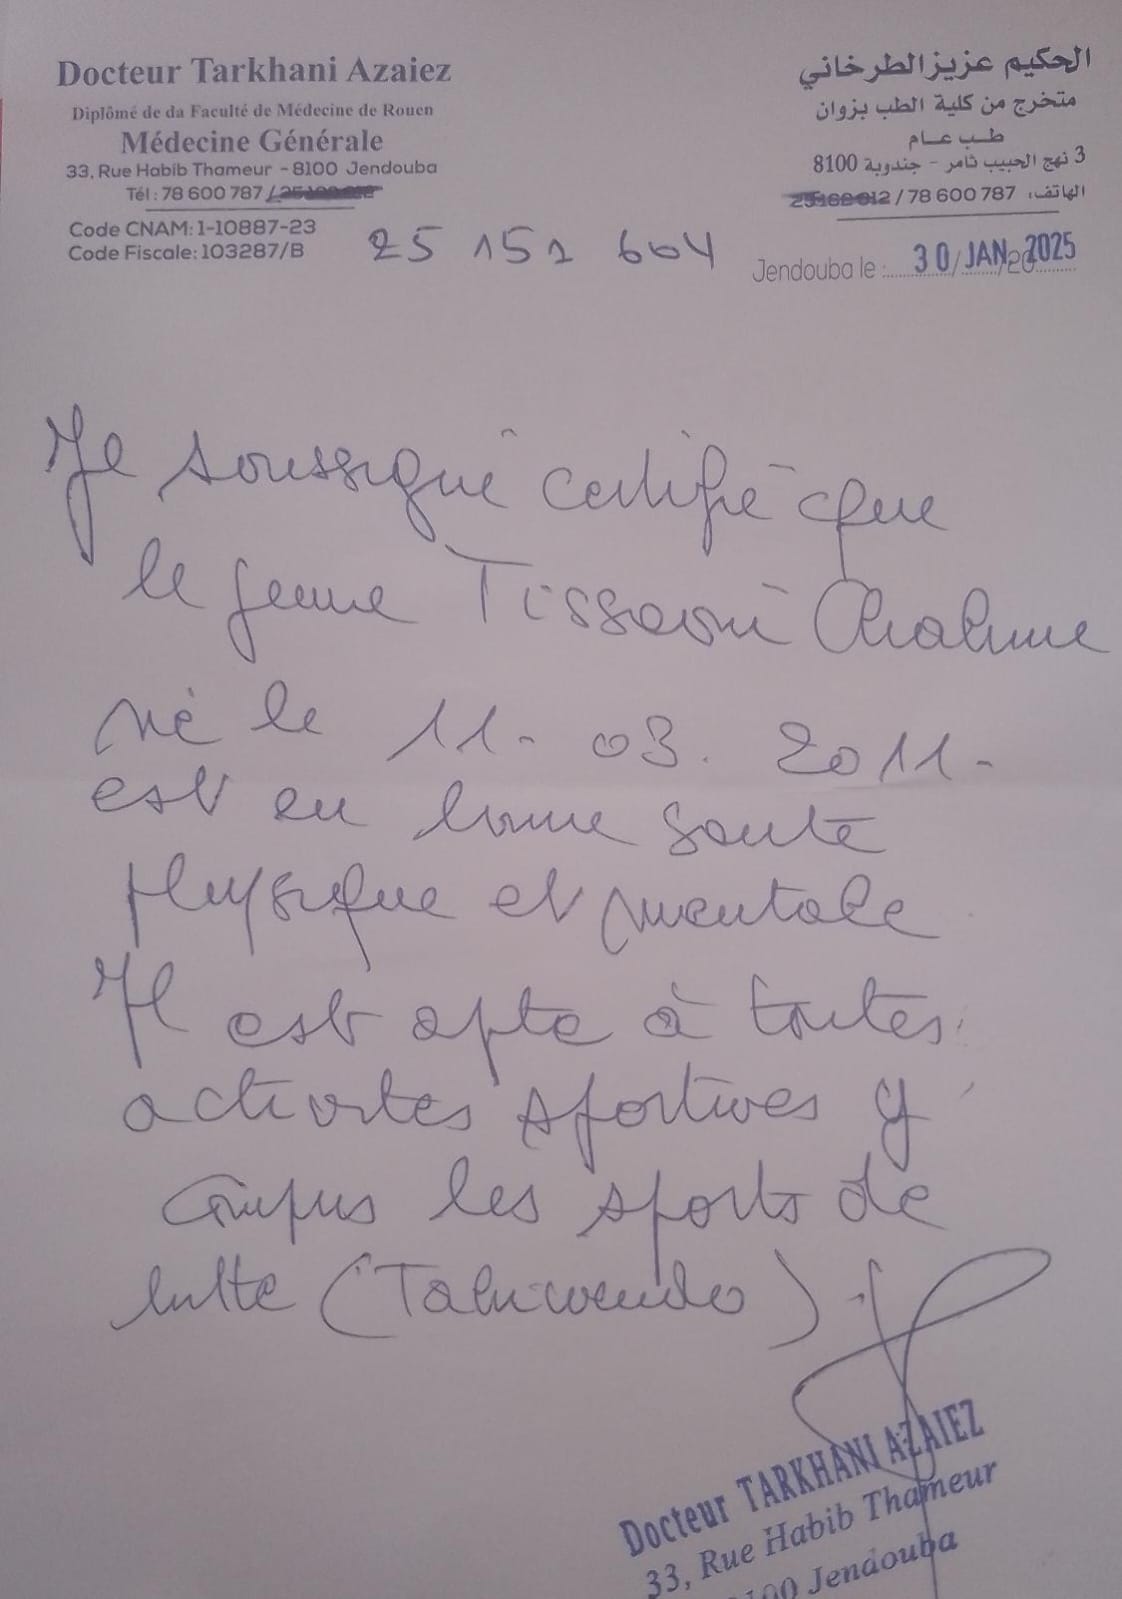 Docteur Tarkhani Azaiez
Diplômé de da Faculté de Médecine de Rouen
Médecine Générale
33, Rue Habib Thameur - 8100 Jendouba
Tél : 78 600 787 /
Code CNAM: 1-10887-23
Code Fiscale: 103287/B
الحكيم عزيز الطرخاني
متخرج من كلية الطب بزوان
طب عام
3 نهج الحبيب ثامر - جندوبة 8100
الهاتف: 78 600 787 /
25 151 604
Jendouba le : 30 JAN. 2025
Je soussigné certifie que
le jeune Tissaoui
né le 11-03.2011-
est en bonne santé
physique et mentale
Il est apte à toutes
activités sportives y
compris les sports de
lutte (Taekwendo)
Docteur TARKHANI AZAIEZ
33, Rue Habib Thameur
8100 Jendouba